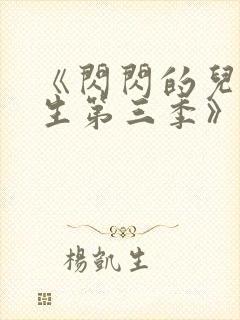 《閃閃的兒
生第三季》
楊凱生